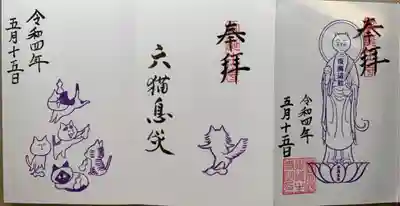 奉拝
令和四年
五月十五日
奉拝
六猫息災
令和四年
五月十五日